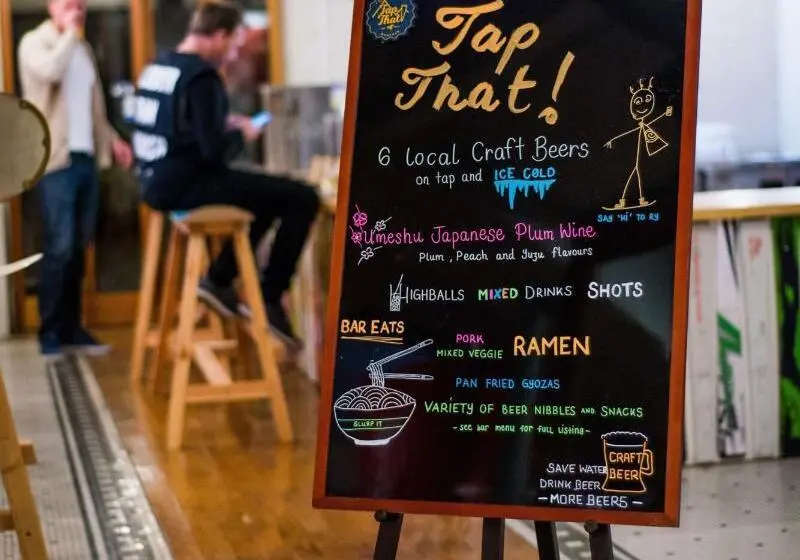 Tap
That!
Tap
That!
6 local Craft Beers
on tap and ICE COLD
SAY 'HI' TO RY
Umeshu Japanese Plum Wine
Plum, Peach and Yuzu flavours
HIGHBALLS MIXED DRINKS SHOTS
BAR EATS
PORK
MIXED VEGGIE RAMEN
PAN FRIED GYOZAS
SLURP IT
VARIETY OF BEER NIBBLES AND SNACKS
- see bar menu for full listing -
CRAFT
BEER
SAVE WATER
DRINK BEER
- MORE BEERS -